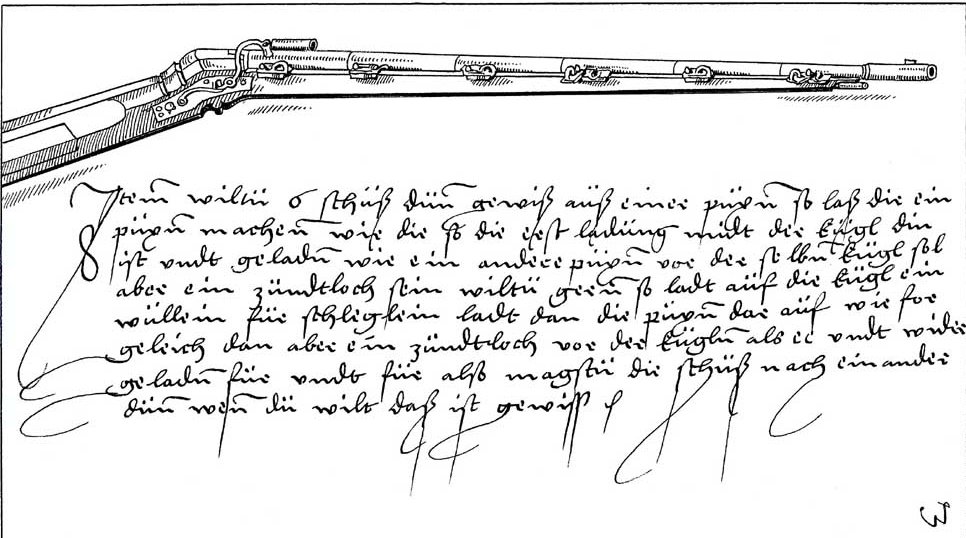 Item wiltu 6 schüß dün gewiß auß einer püxn so laß die ein
püxn machen wie die so die erst ladüng midt der kügl din
ist vndt geladn wie ein andere püxn vor der selbn kügl sol
aber ein zündtloch sein wiltü geren so ladt aüf die kügl ein
wüllein für schleglein ladt dan die püxn dar aüf wie for
geleich dan aber ein zündtloch vor der kügln als er vndt wider
geladn für vndt für also magstü die schüß nach einander
dün wen dü wilt daß ist gewiss